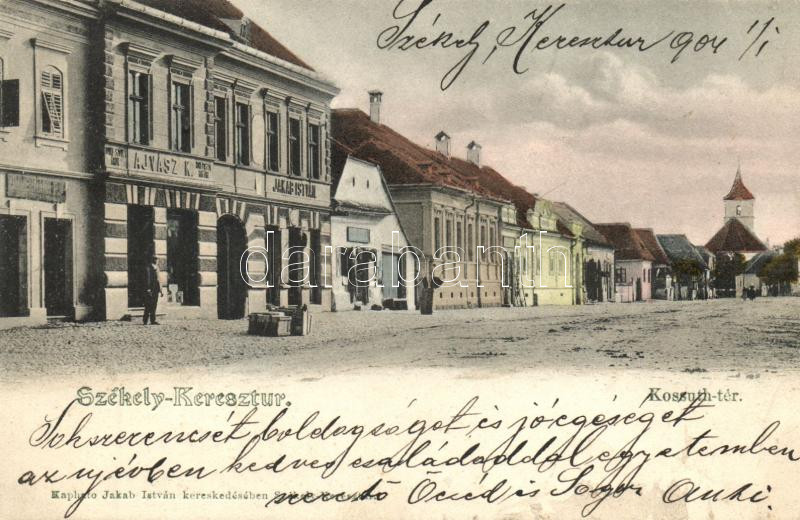 Székely, Keresztur 904 1/1
AJVÁSZ K.
JAKAB ISTVÁN
darabanth
Székely-Keresztur.
Kossuth-tér.
Sok szerencsét boldogságot is jó egéséget
az új évben kedves családoddal egyetemben
Kapható Jakab István kereskedésében
szerető Öcséd is Sógor Anki.